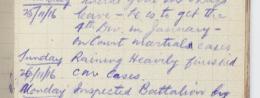 25/11/16 leave - He is to get the
4th Div. in January -
in Court martial cases
Sunday Raining Heavily finished
26/11/16 CM cases.
Monday Inspected Battalion